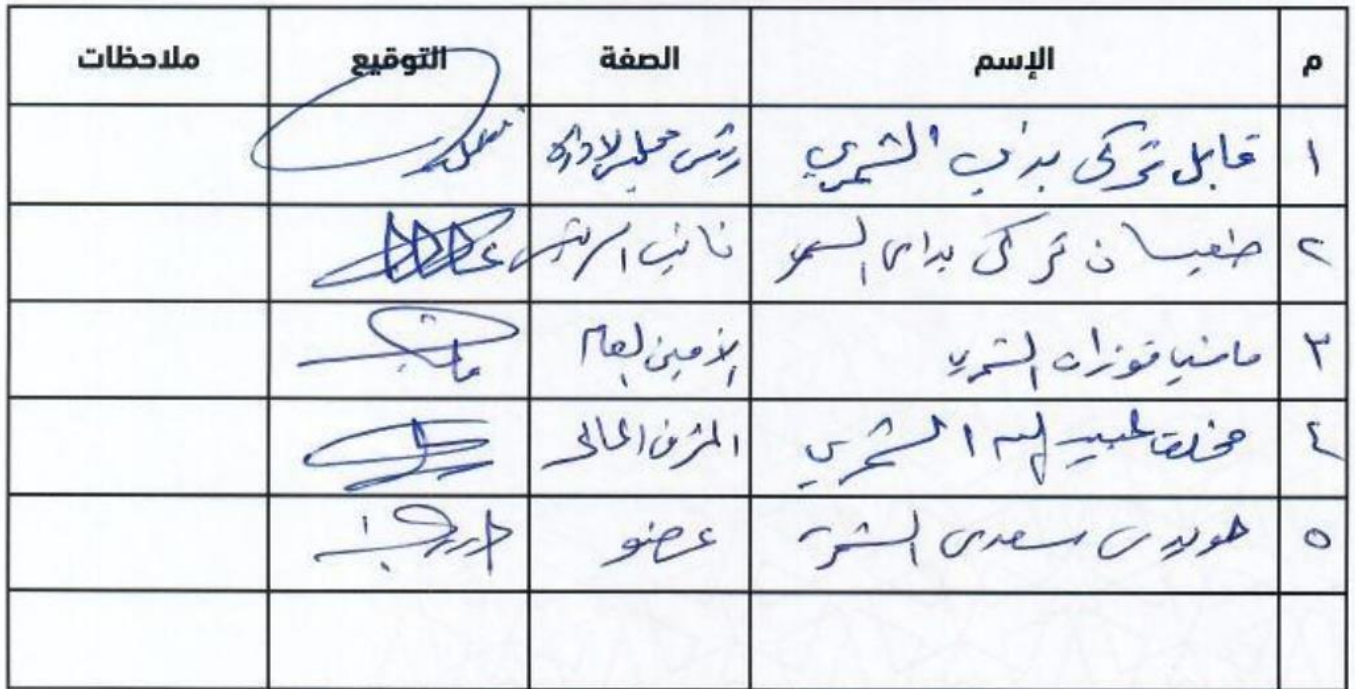 م الإسم الصفة التوقيع ملاحظات
١ قابل تركي بداي الشمري رئيس مجلس الادارة
٢ ضعيان تركي بداي الشمر نائب الرئيس
٣ فوزان الشمري الأمين العام
٤ مخلف الشمري المشرف المالي
٥ هويدي سعدي الشمري عضو